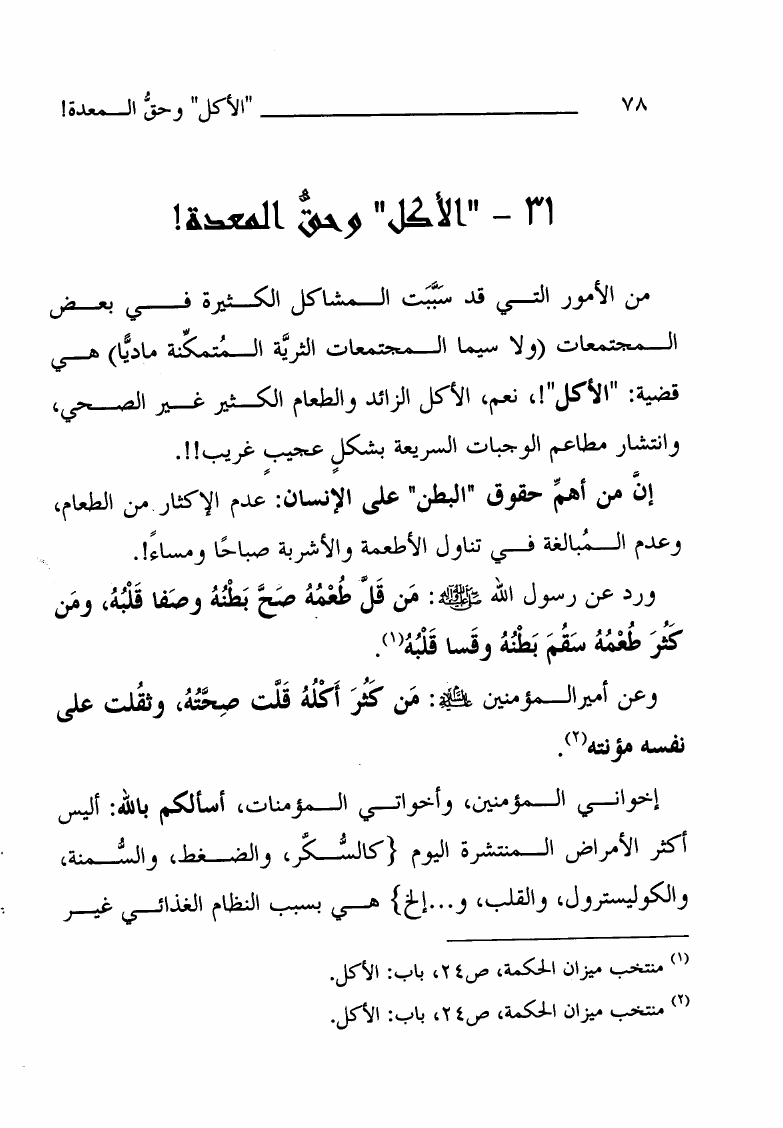 ٧٨ "الأكل" وحقُّ المعدة!
٣١ - "الأكل" وحقُّ المعدة!
من الأمور التي قد سَبَّبَت المشاكل الكثيرة في بعض
المجتمعات (ولا سيما المجتمعات الثريَّة المُتمكِّنة ماديًّا) هي
قضية: "الأكل"!، نعم، الأكل الزائد والطعام الكثير غير الصحي،
وانتشار مطاعم الوجبات السريعة بشكلٍ عجيبٍ غريب!!.
إنَّ من أهمِّ حقوق "البطن" على الإنسان: عدم الإكثار من الطعام،
وعدم المُبالغة في تناول الأطعمة والأشربة صباحًا ومساءً!.
ورد عن رسول الله ﷺ: مَن قَلَّ طُعْمُهُ صَحَّ بَطْنُهُ وصَفا قَلْبُهُ، ومَن
كَثُرَ طُعْمُهُ سَقُمَ بَطْنُهُ وقَسا قَلْبُهُ(١).
وعن أمير المؤمنين: مَن كَثُرَ أَكْلُهُ قَلَّت صِحَّتُهُ، وثقُلت على
نفسه مؤنته(٢).
إخواني المؤمنين، وأخواتي المؤمنات، أسألكم بالله: أليس
أكثر الأمراض المنتشرة اليوم {كالسُّكَّر، والضغط، والسُّمنة،
والكوليسترول، والقلب، و...إلخ} هي بسبب النظام الغذائي غير
(١) منتخب ميزان الحكمة، ص٢٤، باب: الأكل.
(٢) منتخب ميزان الحكمة، ص٢٤، باب: الأكل.